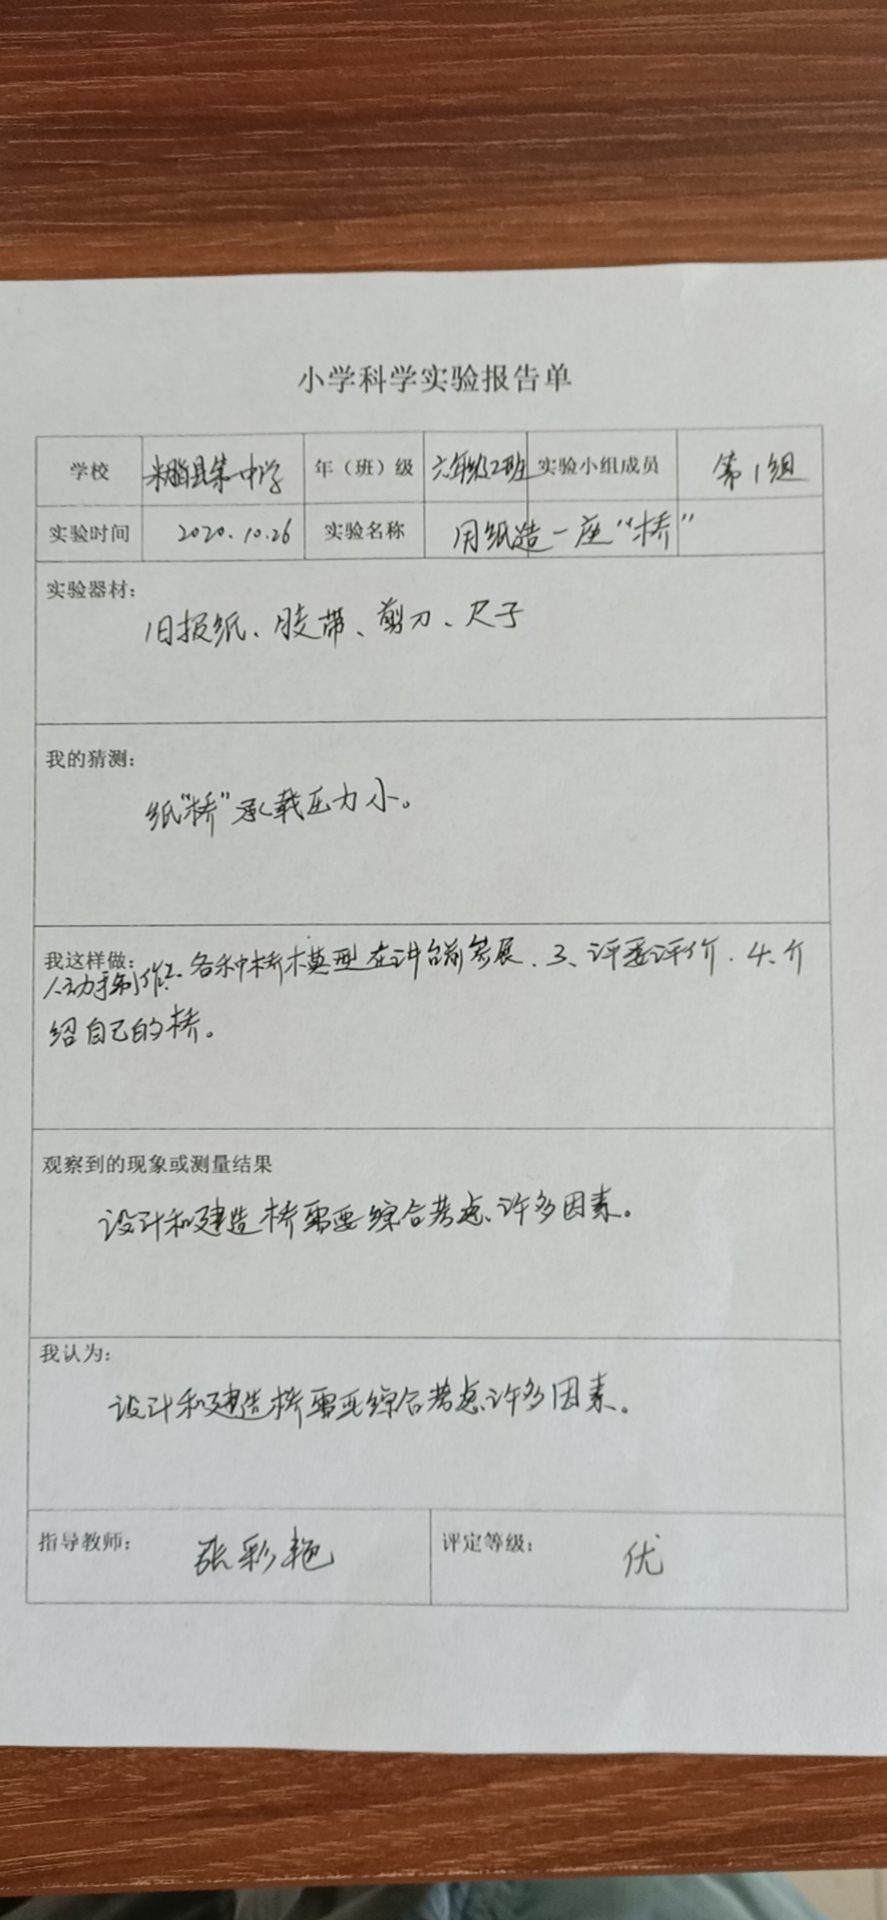 小学科学实验报告单
学校 米脂县第一中学 年（班）级 六年级2班 实验小组成员 第1组
实验时间 2020.10.26 实验名称 用纸造一座“桥”
实验器材：
旧报纸、胶带、剪刀、尺子
我的猜测：
纸“桥”承载压力小。
我这样做：
1、动手制作。2、各种桥模型在讲台前参展、3、评委评价、4、介
绍自己的桥。
观察到的现象或测量结果
设计和建造桥需要综合考虑许多因素。
我认为：
设计和建造桥需要综合考虑许多因素。
指导教师： 张彩艳 评定等级： 优